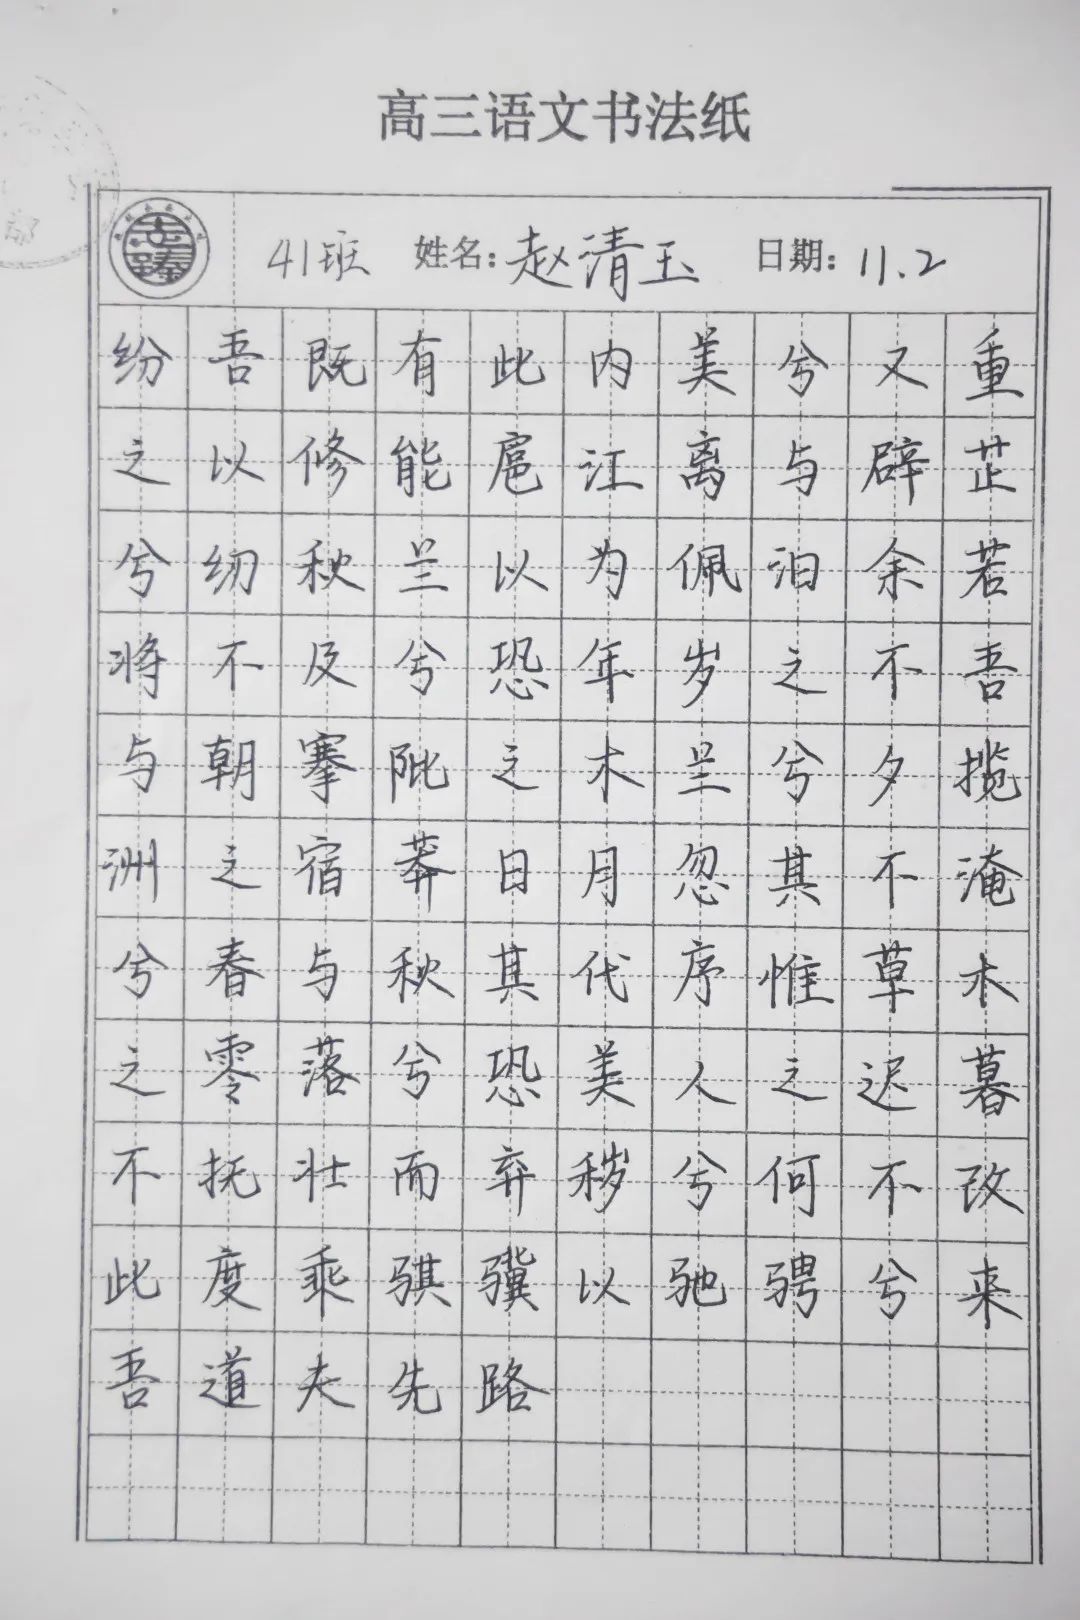 高三语文书法纸
41班 姓名:赵清玉 日期:11.2
纷吾既有此内美兮又重
之以修能扈江离与辟芷
兮纫秋兰以为佩汩余若
将不及兮恐年岁之不吾
与朝搴阰之木兰兮夕揽
洲之宿莽日月忽其不淹
兮春与秋其代序惟草木
之零落兮恐美人之迟暮
不抚壮而弃秽兮何不改
此度乘骐骥以驰骋兮来
吾道夫先路
志臻
部